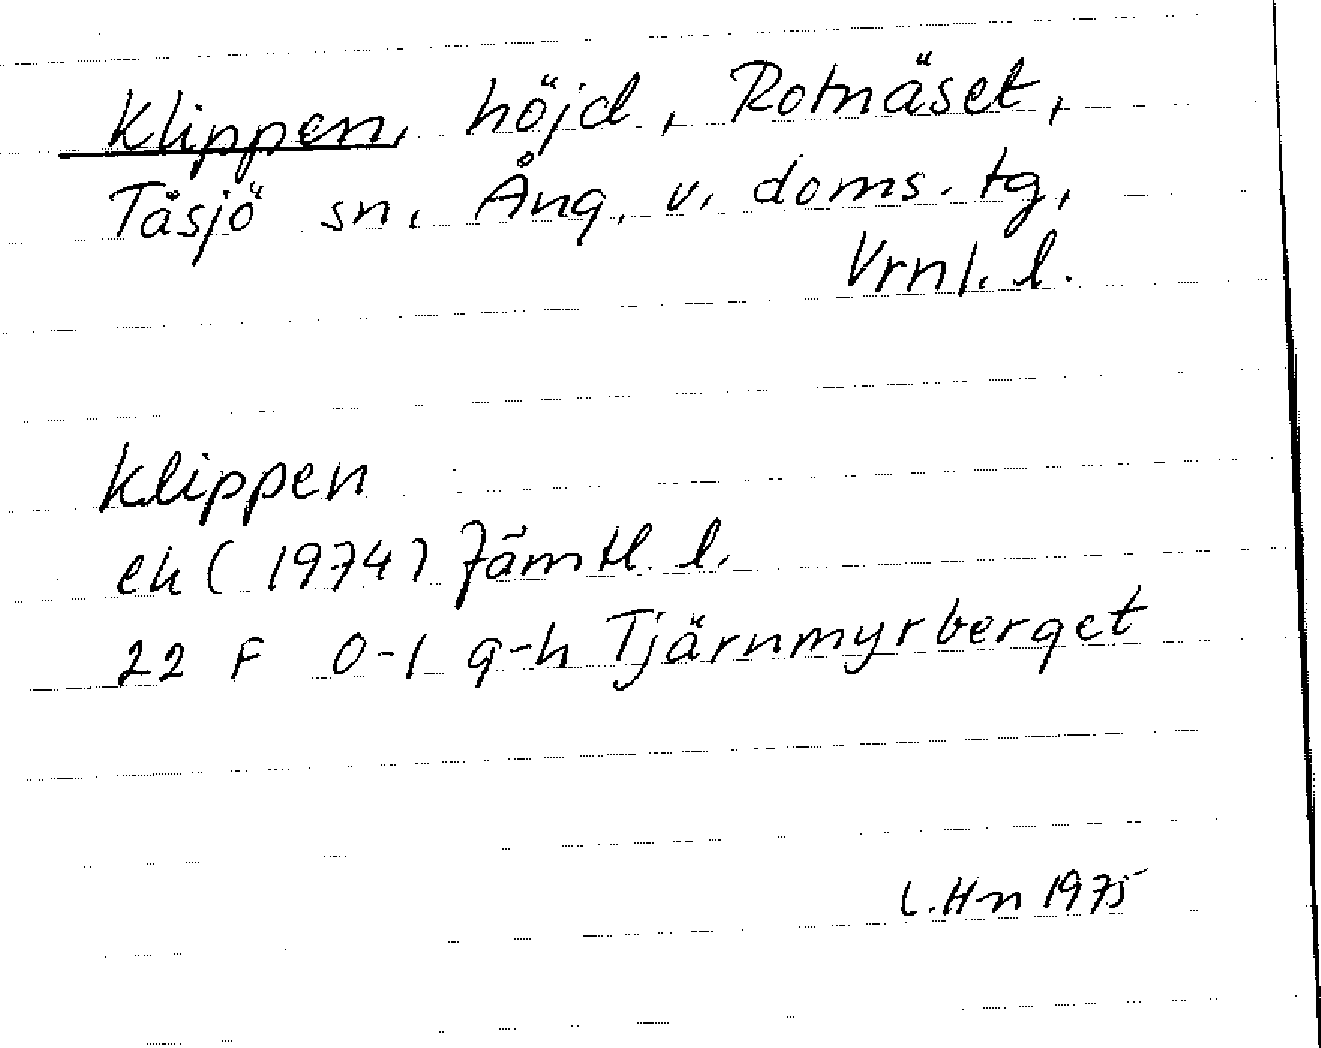 Klippen, höjd, Rotnäset,
Tåsjö sn, Ång. v. doms. tg,
Vrnl. l.
Klippen
ek (1974) Jämtl. l.
22 F 0-1 g-h Tjärnmyrberget
L. Hn 1975